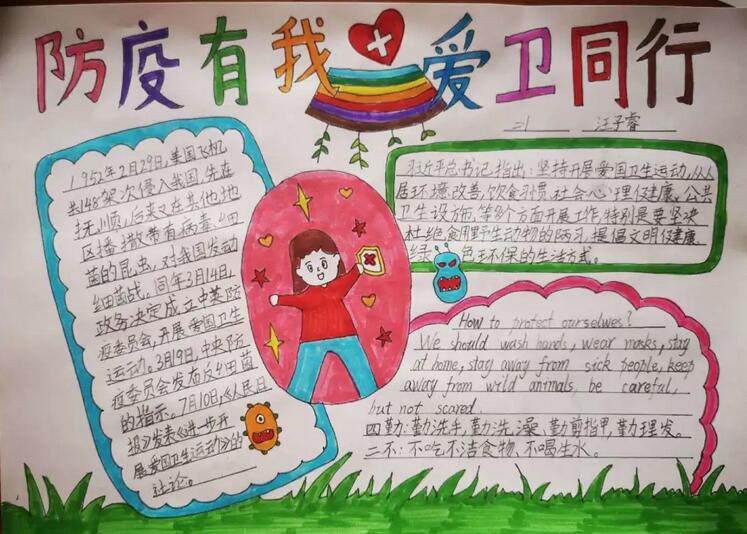 防疫有我 爱卫同行
二1 汪子睿
1952年2月29日,美国飞机
共148架次侵入我国,先在
抚顺,后来又在其他地
区播撒带有病毒、细
菌的昆虫,对我国发动
细菌战。同年3月14日,
政务决定成立中英防
疫委员会,开展爱国卫生
运动。3月9日,中央防
疫委员会发布反细菌
的指示。7月10日,《人民日
报》发表《进一步开
展爱国卫生运动》的
社论。
习近平总书记指出:坚持开展爱国卫生运动,从人
居环境改善、饮食习惯、社会心理健康、公共
卫生设施等多个方面开展工作,特别是要坚决
杜绝食用野生动物的陋习,提倡文明健康、
绿色环保的生活方式。
How to protect ourselwes?
We should wash hands, wear masks, stay
at home, stay away from sick people, keep
away from wild animals, be careful,
but not scared.
四勤:勤洗手,勤洗澡,勤剪指甲,勤理发。
二不:不吃不洁食物、不喝生水。